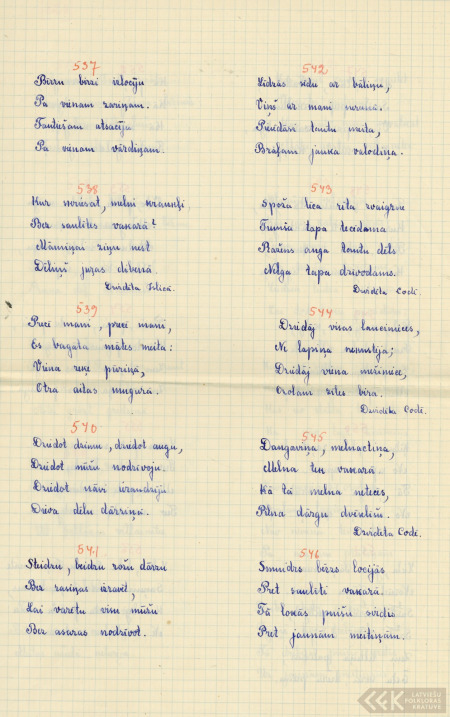 537
Birzu birzi izlocīju
Pa vienam zariņam.
Tautiešam atsacīja
Pa vienam vārdiņam.
538
Kur skriesat, melni kraukļi
Bez saulītes vakarā?
Māmiņai ziņu nest
Dēliņš jūras dibenā.
Dziedāta
539
Preci mani, preci mani,
Es bagāta mātes meita:
Viena seģene pieriņā,
Otra aitas mugurā.
540
Dziedot dzimu, dziedot augu,
Dziedot mūžu nodzīvoju.
Dziedot nāvi
Dieva dēlu dārziņā.
541
Steidzu, beidzu rožu dārzu
Bez rasiņas izravēt,
Lai varētu visu mūžu
Bez asaras nodzīvot.
542
Līdzās sēdu ar bāliņu,
Viņš ar mani nerunāj.
Piesēdās tautu meita,
Brāļam jauka valodiņa.
543
Spoža lēca rīta zvaigzne
Tumša tapa tecēdama
Ražens auga tautu dēls
Nelga tapa dzīvodams.
Dziedāta Codē.
544
Dziedāj visas lauciniecēs,
Ne lapiņa nenustēja;
Dziedāj viena mežiniece,
Ozolam zīles bira.
Dziedāta Codē.
545
Daugaviņa, melnactiņa,
Melna tek vakarā
Kā tā melna netecēs,
Pilna dārgu dvēselīšu.
Dziedāta Codē.
546
Smuidrs bērzs locījās
Pret saulīti vakarā.
Tā lokās puišu sirdis
Pret jaunām meitiņām.
LATVIEŠU
FOLKLORAS
KRĀTUVE